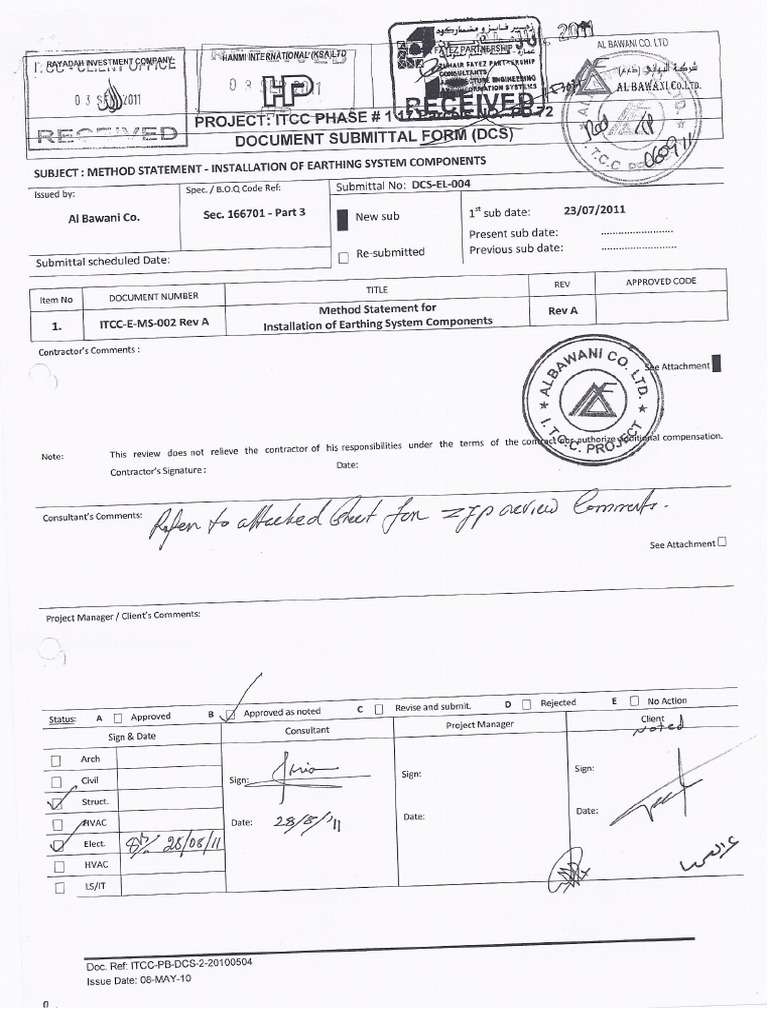 RAYADAH INVESTMENT COMPANY
I.T.CC - CLIENT OFFICE
03 SEP 2011
RECEIVED
HANMI INTERNATIONAL (KSA) LTD
HP
FAYEZ PARTNERSHIP
ZUHAIR FAYEZ PARTNERSHIP
CONSULTANTS
ARCHITECTURE ENGINEERING
INFORMATION SYSTEMS
RECEIVED
2011
AL BAWANI CO. LTD
AL BAWANI CO. LTD.
I.T.C.C
060911
PROJECT: ITCC PHASE # 1
DOCUMENT SUBMITTAL FORM (DCS)
SUBJECT : METHOD STATEMENT - INSTALLATION OF EARTHING SYSTEM COMPONENTS
Issued by:
Al Bawani Co.
Spec. / B.O.Q Code Ref:
Sec. 166701 - Part 3
Submittal No: DCS-EL-004
New sub
Re-submitted
1st sub date: 23/07/2011
Present sub date: ........................
Previous sub date: ........................
Submittal scheduled Date:
Item No DOCUMENT NUMBER TITLE REV APPROVED CODE
1. ITCC-E-MS-002 Rev A Method Statement for Installation of Earthing System Components Rev A
Contractor's Comments :
See Attachment
ALBAWANI CO. LTD.
I.T.C.C. PROJECT
Note: This review does not relieve the contractor of his responsibilities under the terms of the contract nor authorize additional compensation.
Contractor's Signature : Date:
Consultant's Comments: Refer to attached sheet for ZFP review Comments.
See Attachment
Project Manager / Client's Comments:
Status: A Approved B Approved as noted C Revise and submit. D Rejected E No Action
Sign & Date Consultant Project Manager Client
noted
Arch
Civil
Struct.
HVAC
Elect. 28/08/11
HVAC
LS/IT
Sign: Sign: Sign:
Date: 28/8/'11 Date: Date:
Doc. Ref: ITCC-PB-DCS-2-20100504
Issue Date: 08-MAY-10